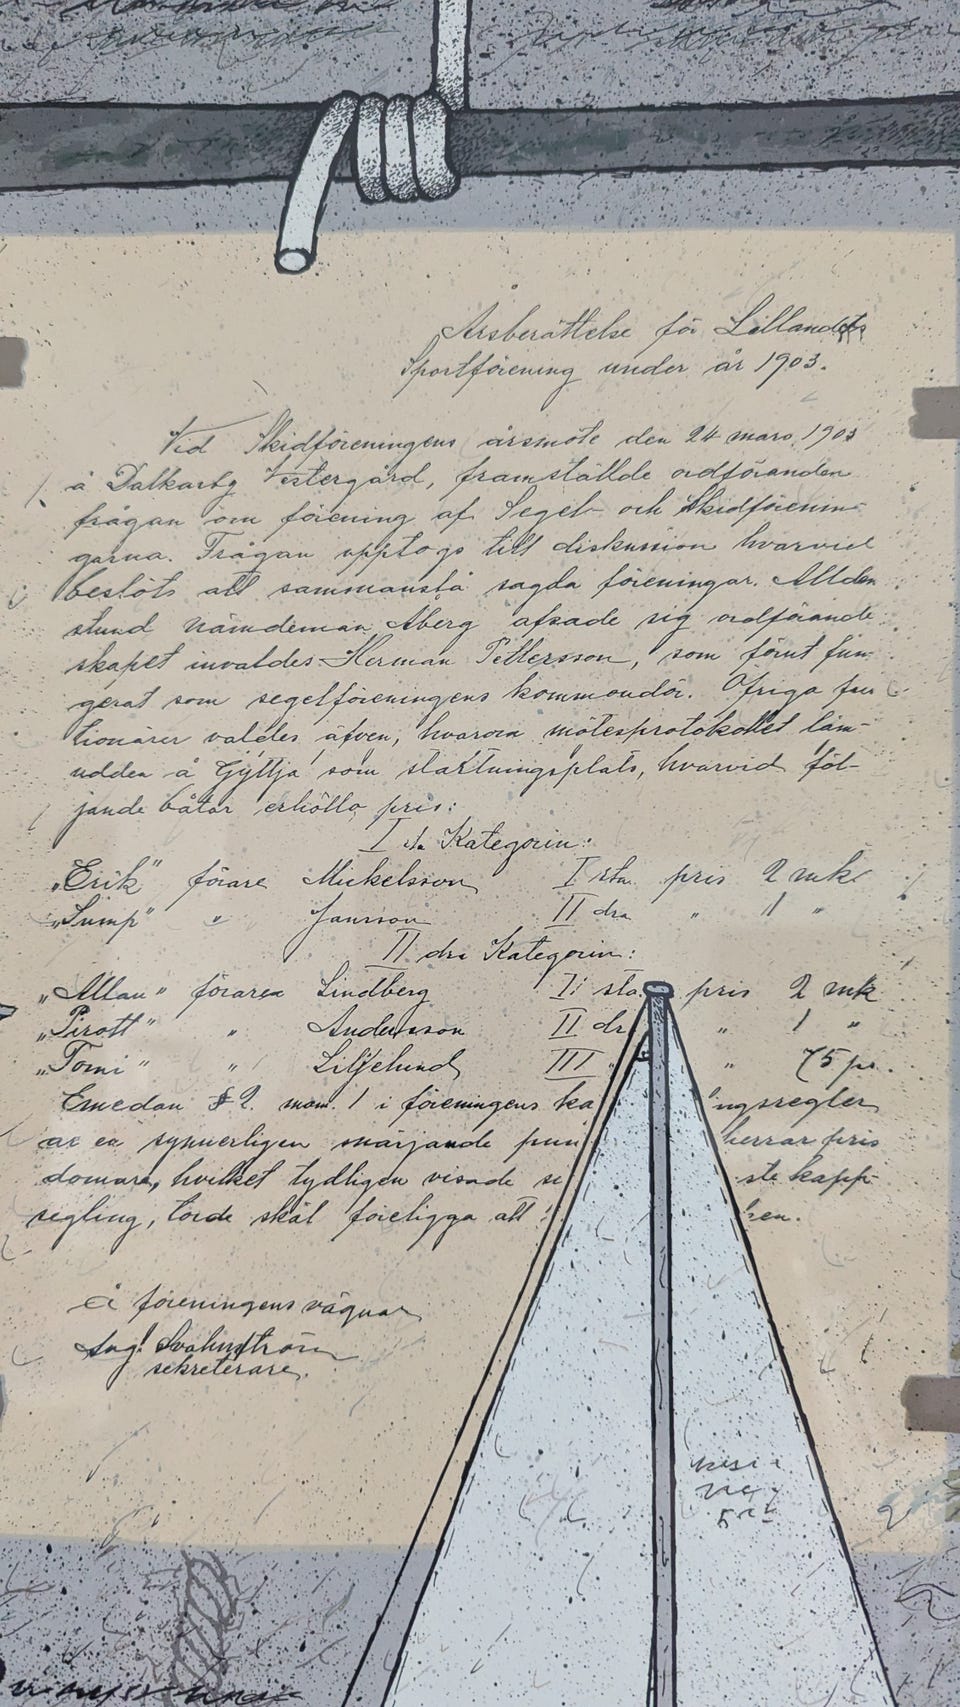 Årsberättelse för Lillandets
Sportförening under år 1903.
Vid Skidföreningens årsmöte den 24 mars 1903
å Dalkarby Västergård, framställde ordföranden
frågan om förening af Segel- och Skidförenin-
garna. Frågan upptogs till diskussion hvarvid
beslöts att sammanslå sagda föreningar. Allden
stund nämdeman Åberg afsade sig ordförande
skapet invaldes Herman Pettersson, som förut fun-
gerat som segelföreningens kommondör. Öfriga fun
tionärer valdes äfven, hvarom mötesprotokollet läm-
udden å Gyttja som startningsplats, hvarvid föl-
jande båtar erhöllo pris:
I sta Kategorin:
„Erik" förare Mickelsson I sta pris 2 mk
„Sump" " Jansson II dra " 1 "
II dra Kategorin:
„Allan" förare Lindberg I sta pris 2 mk
„Pirott" " Andersson II dr " 1 "
„Tomi" " Liljelund III " " 75 pi.
Emedan § 2. mom. 1 i föreningens ka ingsregler
är en synnerligen snärjande pun herrar pris
domare, hvilket tydligen visade si ste kapp-
segling, torde skäl föreligga att
å föreningens vägnar
sekreterare.